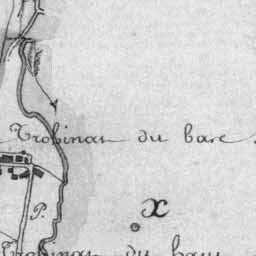 Trobinas du bare
x
P.
Trobinas du haut